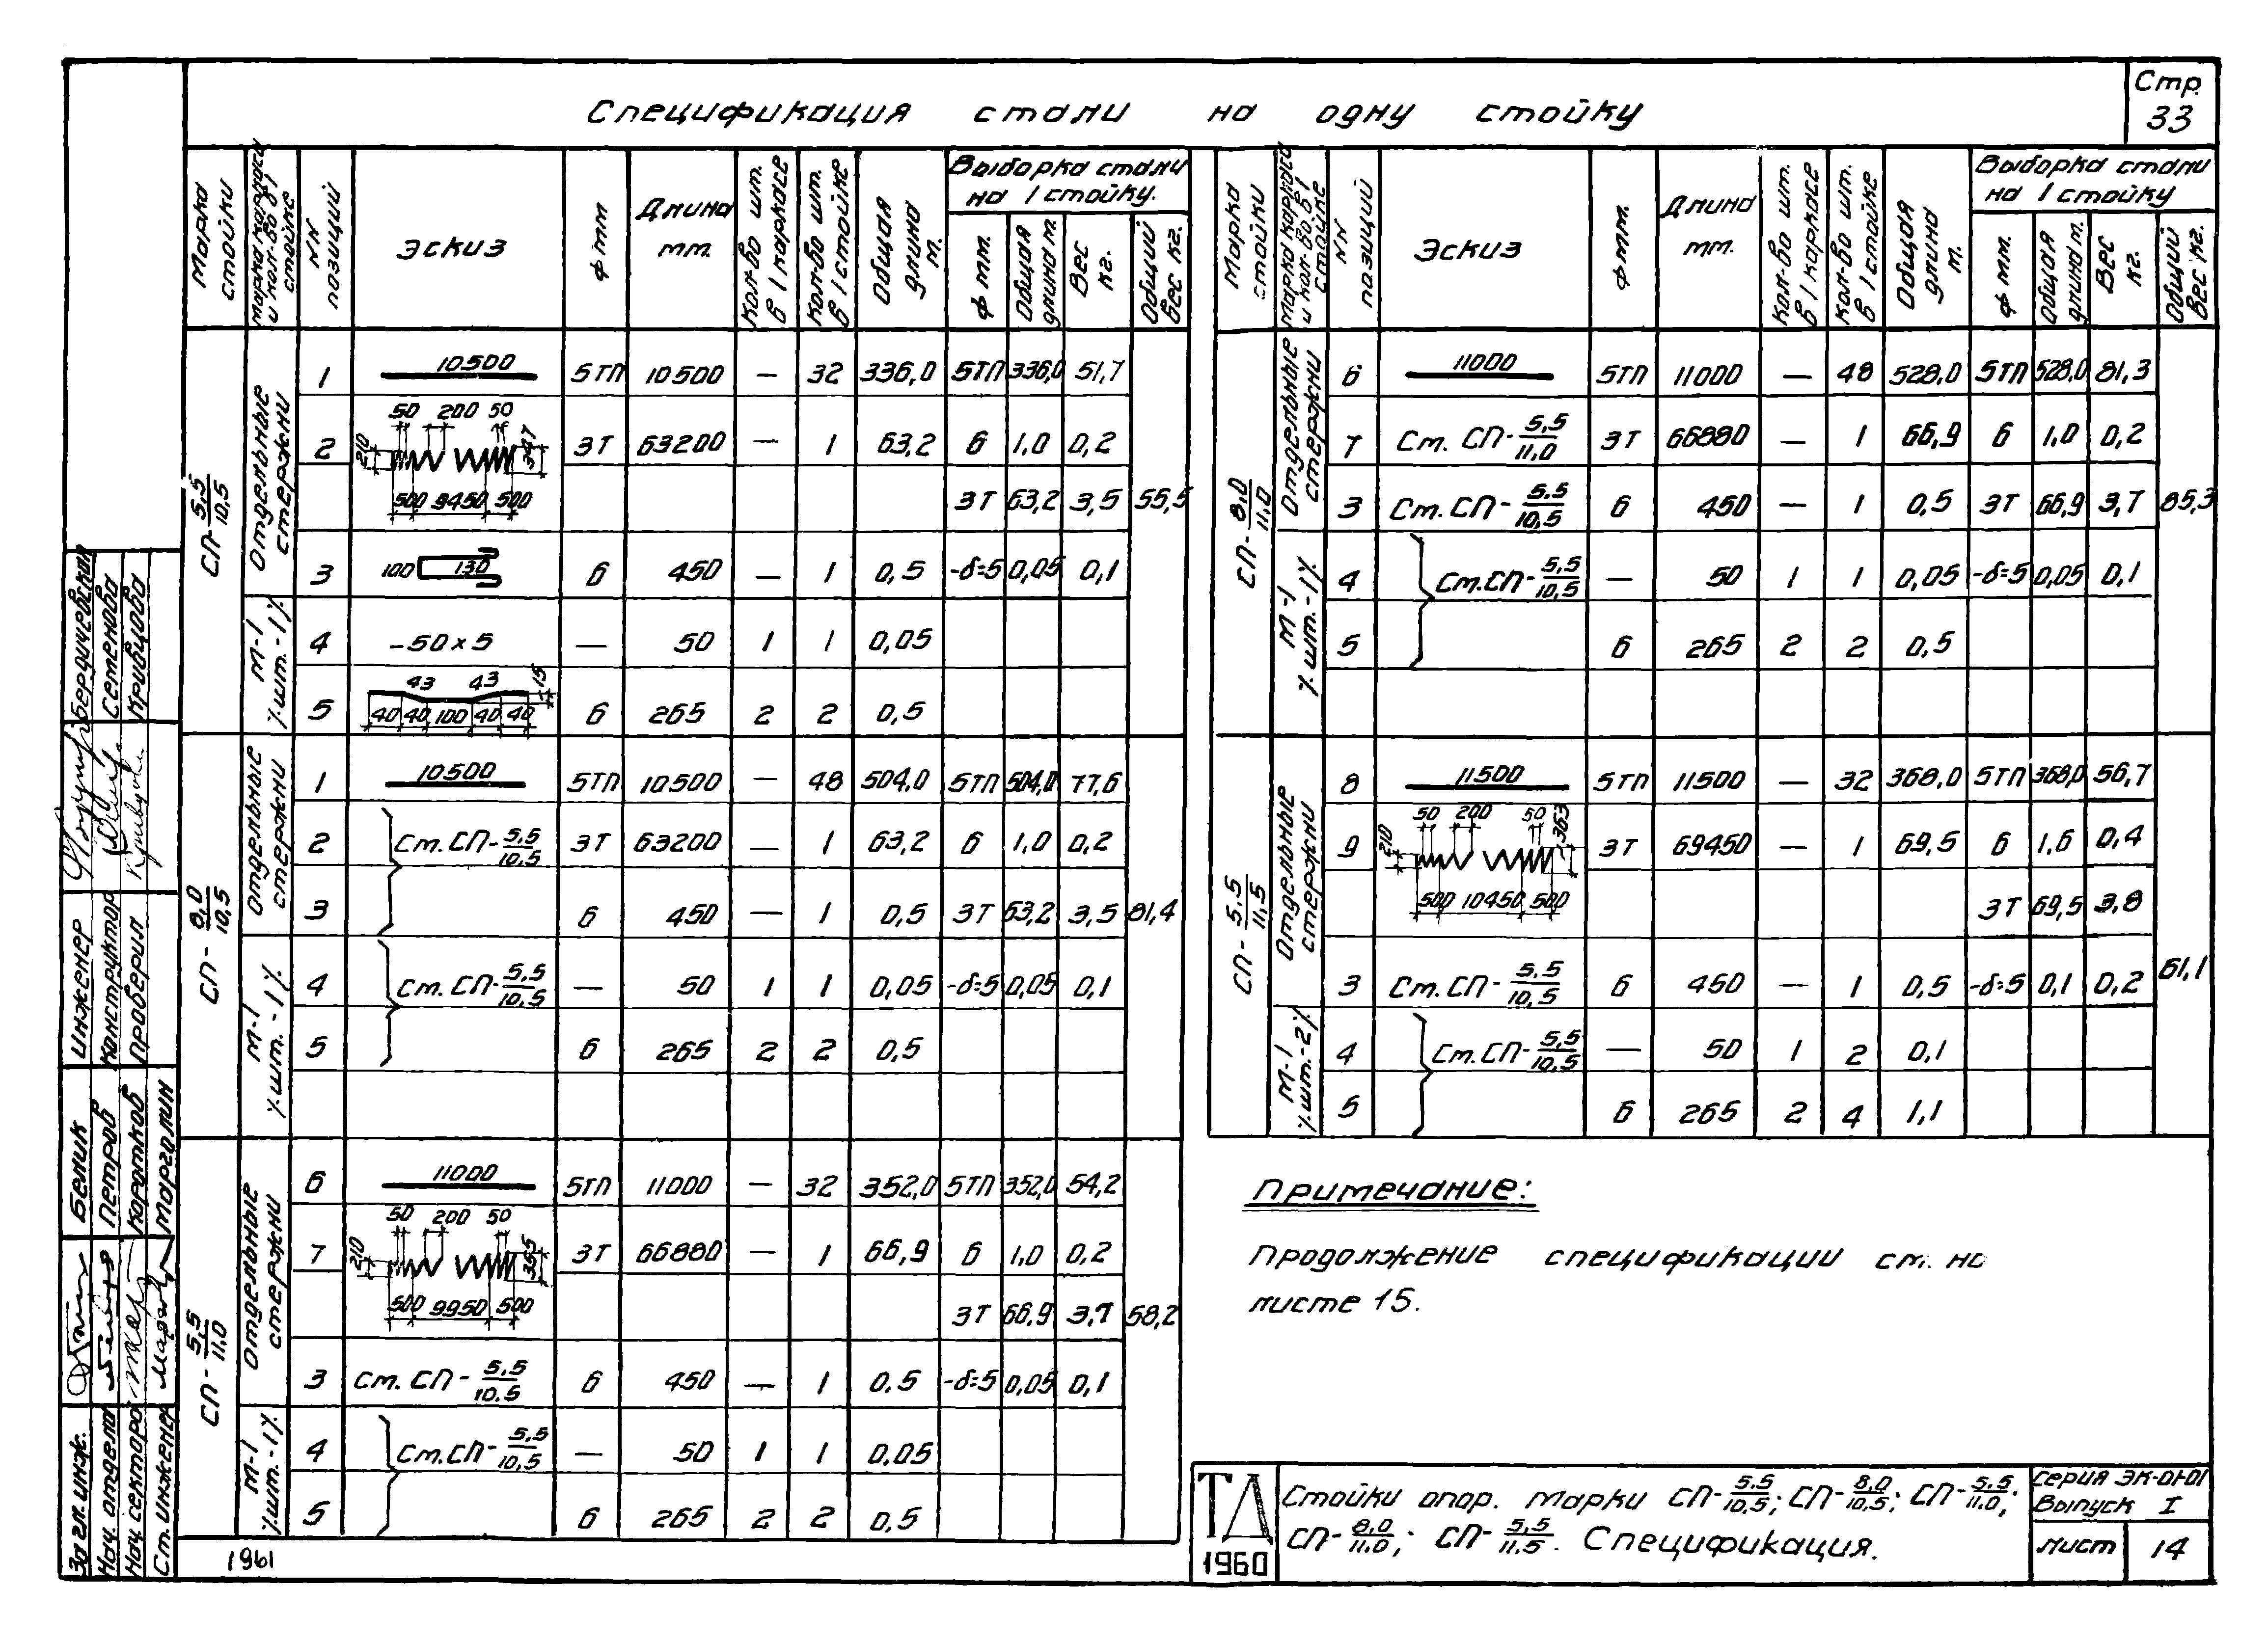 Стр. 33
Спецификация стали на одну стойку
Марка стойки | Марка каркаса и кол-во в 1 стойке | NN позиций | Эскиз | ф мм | Длина мм. | Кол-во шт. в 1 каркасе | Кол-во шт. в 1 стойке | Общая длина м. | Выборка стали на 1 стойку. | ф мм. | Общая длина м. | Вес кг. | Общий вес кг.
СП-5,5/10,5
Отдельные стержни
1 | 10500 | 5ТП | 10500 | — | 32 | 336,0 | 5ТП | 336,0 | 51,7
2 | 50 200 50 210 347 500 9450 500 | 3Т | 63200 | — | 1 | 63,2 | 6 | 1,0 | 0,2
3Т | 63,2 | 3,5 | 55,5
3 | 100 130 | 6 | 450 | — | 1 | 0,5 | -δ=5 | 0,05 | 0,1
М-1 шт.-1
4 | -50×5 | — | 50 | 1 | 1 | 0,05
5 | 43 43 15 40 40 100 40 40 | 6 | 265 | 2 | 2 | 0,5
СП-8,0/10,5
Отдельные стержни
1 | 10500 | 5ТП | 10500 | — | 48 | 504,0 | 5ТП | 504,0 | 77,6
2 | См. СП-5,5/10,5 | 3Т | 63200 | — | 1 | 63,2 | 6 | 1,0 | 0,2
3 | 6 | 450 | — | 1 | 0,5 | 3Т | 63,2 | 3,5 | 81,4
М-1 шт.-1
4 | См. СП-5,5/10,5 | — | 50 | 1 | 1 | 0,05 | -δ=5 | 0,05 | 0,1
5 | 6 | 265 | 2 | 2 | 0,5
СП-5,5/11,0
Отдельные стержни
6 | 11000 | 5ТП | 11000 | — | 32 | 352,0 | 5ТП | 352,0 | 54,2
7 | 50 200 50 210 355 500 9950 500 | 3Т | 66880 | — | 1 | 66,9 | 6 | 1,0 | 0,2
3Т | 66,9 | 3,7 | 58,2
3 | См. СП-5,5/10,5 | 6 | 450 | — | 1 | 0,5 | -δ=5 | 0,05 | 0,1
М-1 шт.-1
4 | См. СП-5,5/10,5 | — | 50 | 1 | 1 | 0,05
5 | 6 | 265 | 2 | 2 | 0,5
1961
Марка стойки | Марка каркаса и кол-во в 1 стойке | NN позиций | Эскиз | ф мм. | Длина мм. | Кол-во шт. в 1 каркасе | Кол-во шт. в 1 стойке | Общая длина м. | Выборка стали на 1 стойку | ф мм. | Общая длина м. | Вес кг. | Общий вес кг.
СП-8,0/11,0
Отдельные стержни
6 | 11000 | 5ТП | 11000 | — | 48 | 528,0 | 5ТП | 528,0 | 81,3
7 | См. СП-5,5/11,0 | 3Т | 66880 | — | 1 | 66,9 | 6 | 1,0 | 0,2
3 | См. СП-5,5/10,5 | 6 | 450 | — | 1 | 0,5 | 3Т | 66,9 | 3,7 | 85,3
М-1 шт.-1
4 | См. СП-5,5/10,5 | — | 50 | 1 | 1 | 0,05 | -δ=5 | 0,05 | 0,1
5 | 6 | 265 | 2 | 2 | 0,5
СП-5,5/11,5
Отдельные стержни
8 | 11500 | 5ТП | 11500 | — | 32 | 368,0 | 5ТП | 368,0 | 56,7
9 | 50 200 50 210 363 500 10450 500 | 3Т | 69450 | — | 1 | 69,5 | 6 | 1,6 | 0,4
3Т | 69,5 | 3,8
3 | См. СП-5,5/10,5 | 6 | 450 | — | 1 | 0,5 | -δ=5 | 0,1 | 0,2 | 61,1
М-1 шт.-2
4 | См. СП-5,5/10,5 | — | 50 | 1 | 2 | 0,1
5 | 6 | 265 | 2 | 4 | 1,1
Примечание:
Продолжение спецификации см. на
листе 15.
ТД 1960
Стойки опор. Марки СП-5,5/10,5; СП-8,0/10,5; СП-5,5/11,0;
СП-8,0/11,0; СП-5,5/11,5. Спецификация.
Серия ЭК-01-01
Выпуск I
Лист 14
Инженер Бердичевская
Конструктор Семенова
Проверил Кривцова
Зд гл. инж. Беник
Нач. отдела Петров
Нач. сектора Коротков
Ст. инженер Марголин